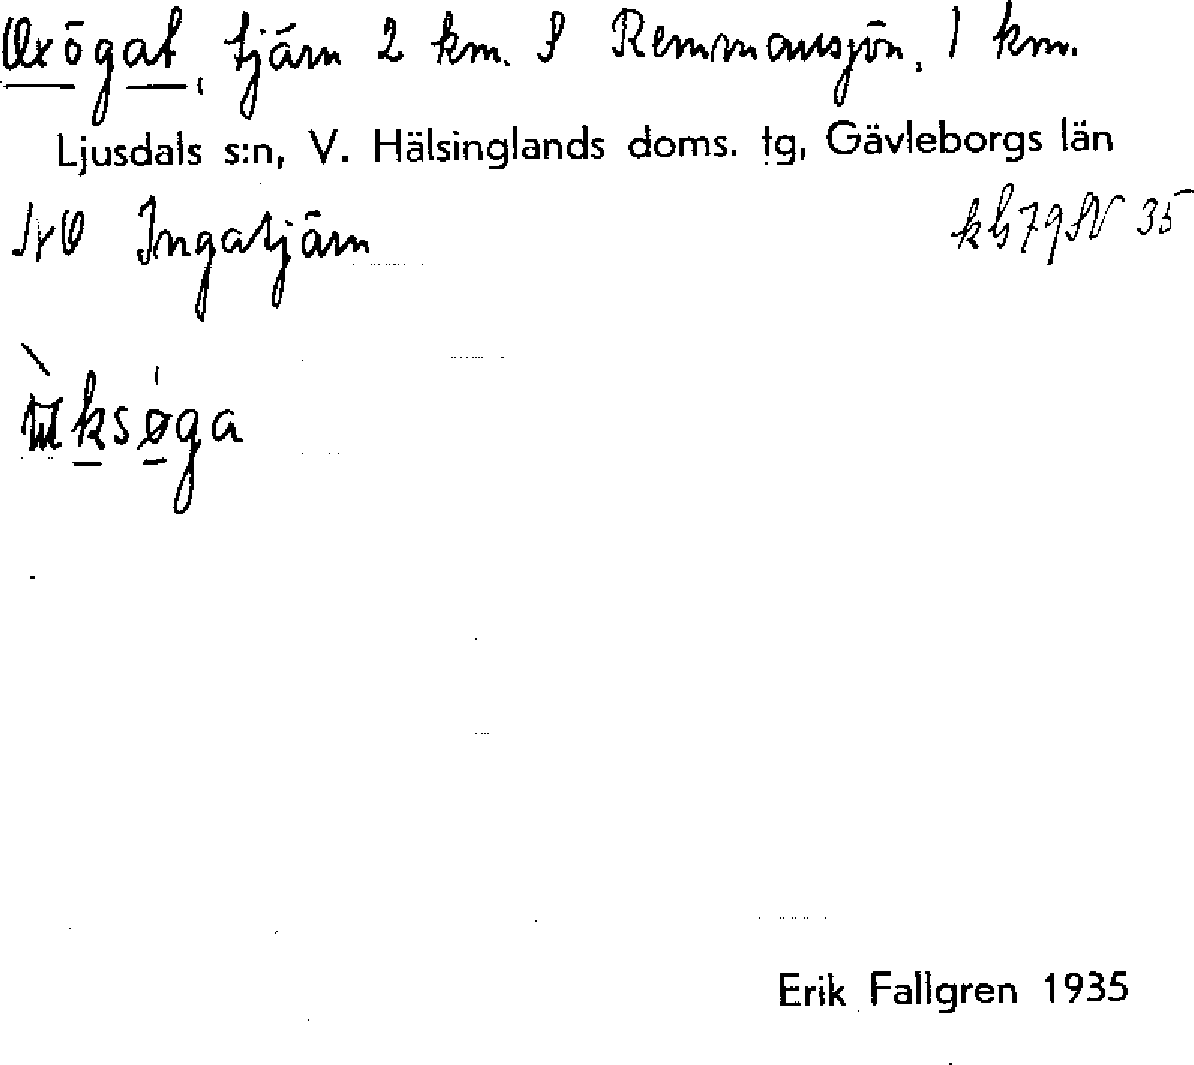 Oxögat, tjärn 2 km. S Remmarsjön, 1 km.
Ljusdals s:n, V. Hälsinglands doms. tg, Gävleborgs län
NO Ingatjärn
35
Erik Fallgren 1935